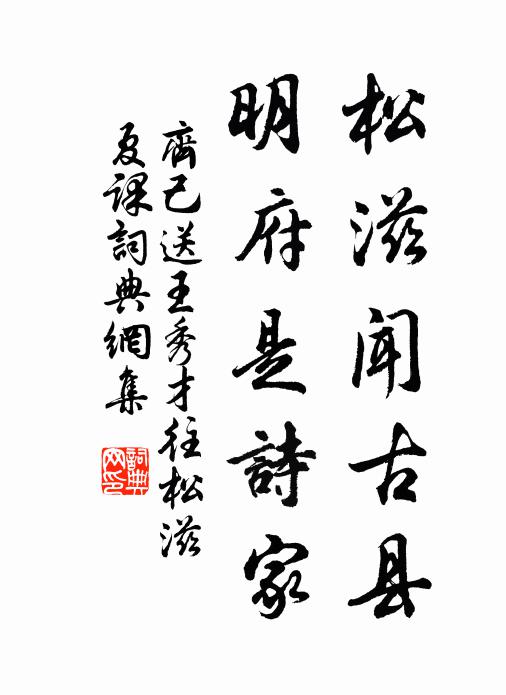 松滋闻古县
明府是詩家
齊己送王秀才往松滋
夏课詞典網集
詞典网印